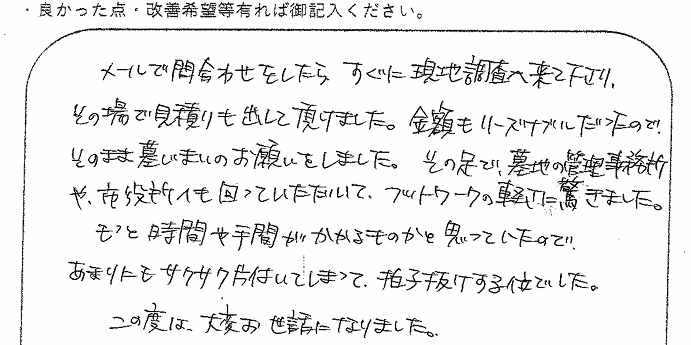 ・良かった点・改善希望等有れば御記入ください。
メールで問合わせをしたら すぐに現地調査へ来て下さり、
その場で見積りも出して頂けました。金額もリーズナブルだったので、
そのまま墓じまいのお願いをしました。その足で、墓地の管理事務所
や、市役所へも回っていただいて、フットワークの軽さに驚きました。
もっと時間や手間がかかるものかと思っていたので、
あまりにもサクサク片付いてしまって、拍子抜けする位でした。
この度は、大変お世話になりました。